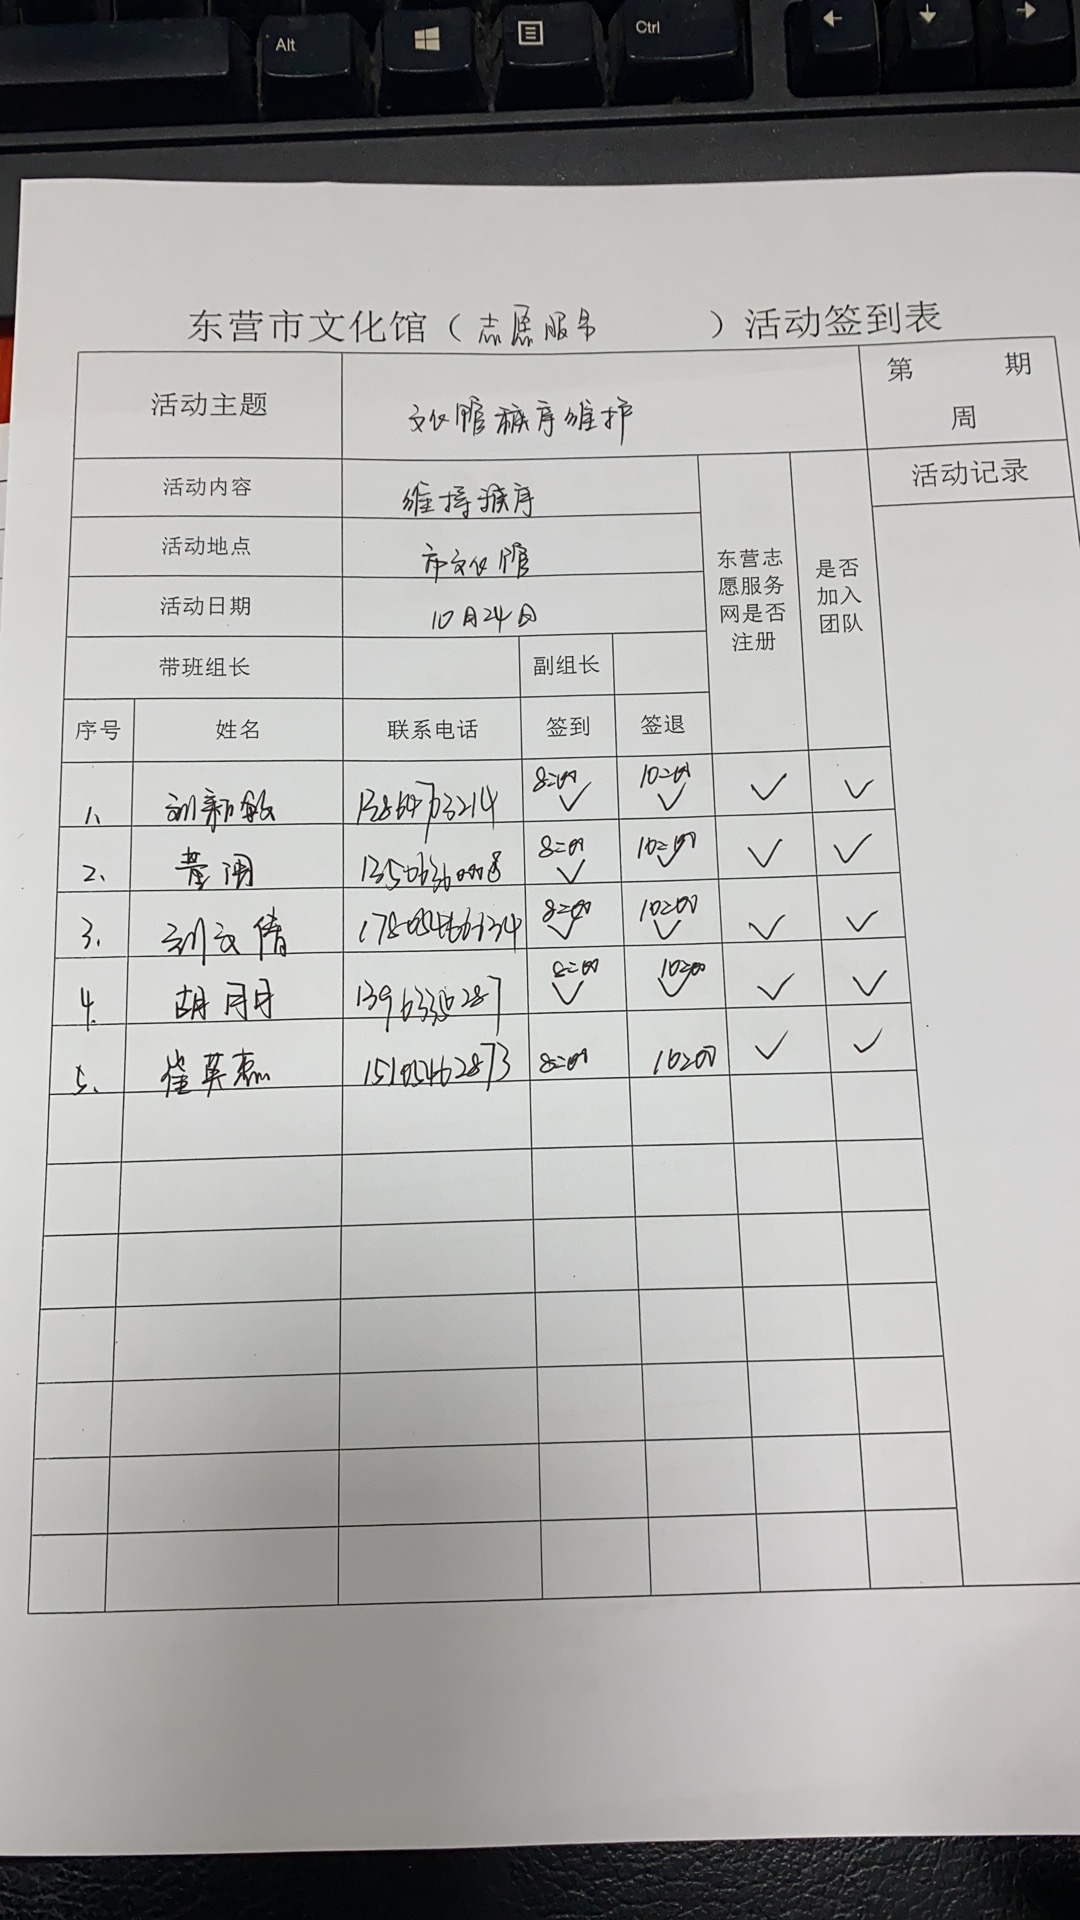 Alt
Ctrl
东营市文化馆（志愿服务 ）活动签到表
活动主题 文化馆秩序维护 第 期
周
活动内容 维持秩序 东营志愿服务网是否注册 是否加入团队 活动记录
活动地点 市文化馆
活动日期 10月24日
带班组长 副组长
序号 姓名 联系电话 签到 签退
1、 刘新敏 13864703214 8:00 ✓ 10:00 ✓ ✓ ✓
2、 8:00 ✓ 10:00 ✓ ✓ ✓
3、 刘文倩 8:00 ✓ 10:00 ✓ ✓ ✓
4. 胡月月 8:00 ✓ 10:00 ✓ ✓ ✓
5、 崔英 15105462873 8:00 10:00 ✓ ✓